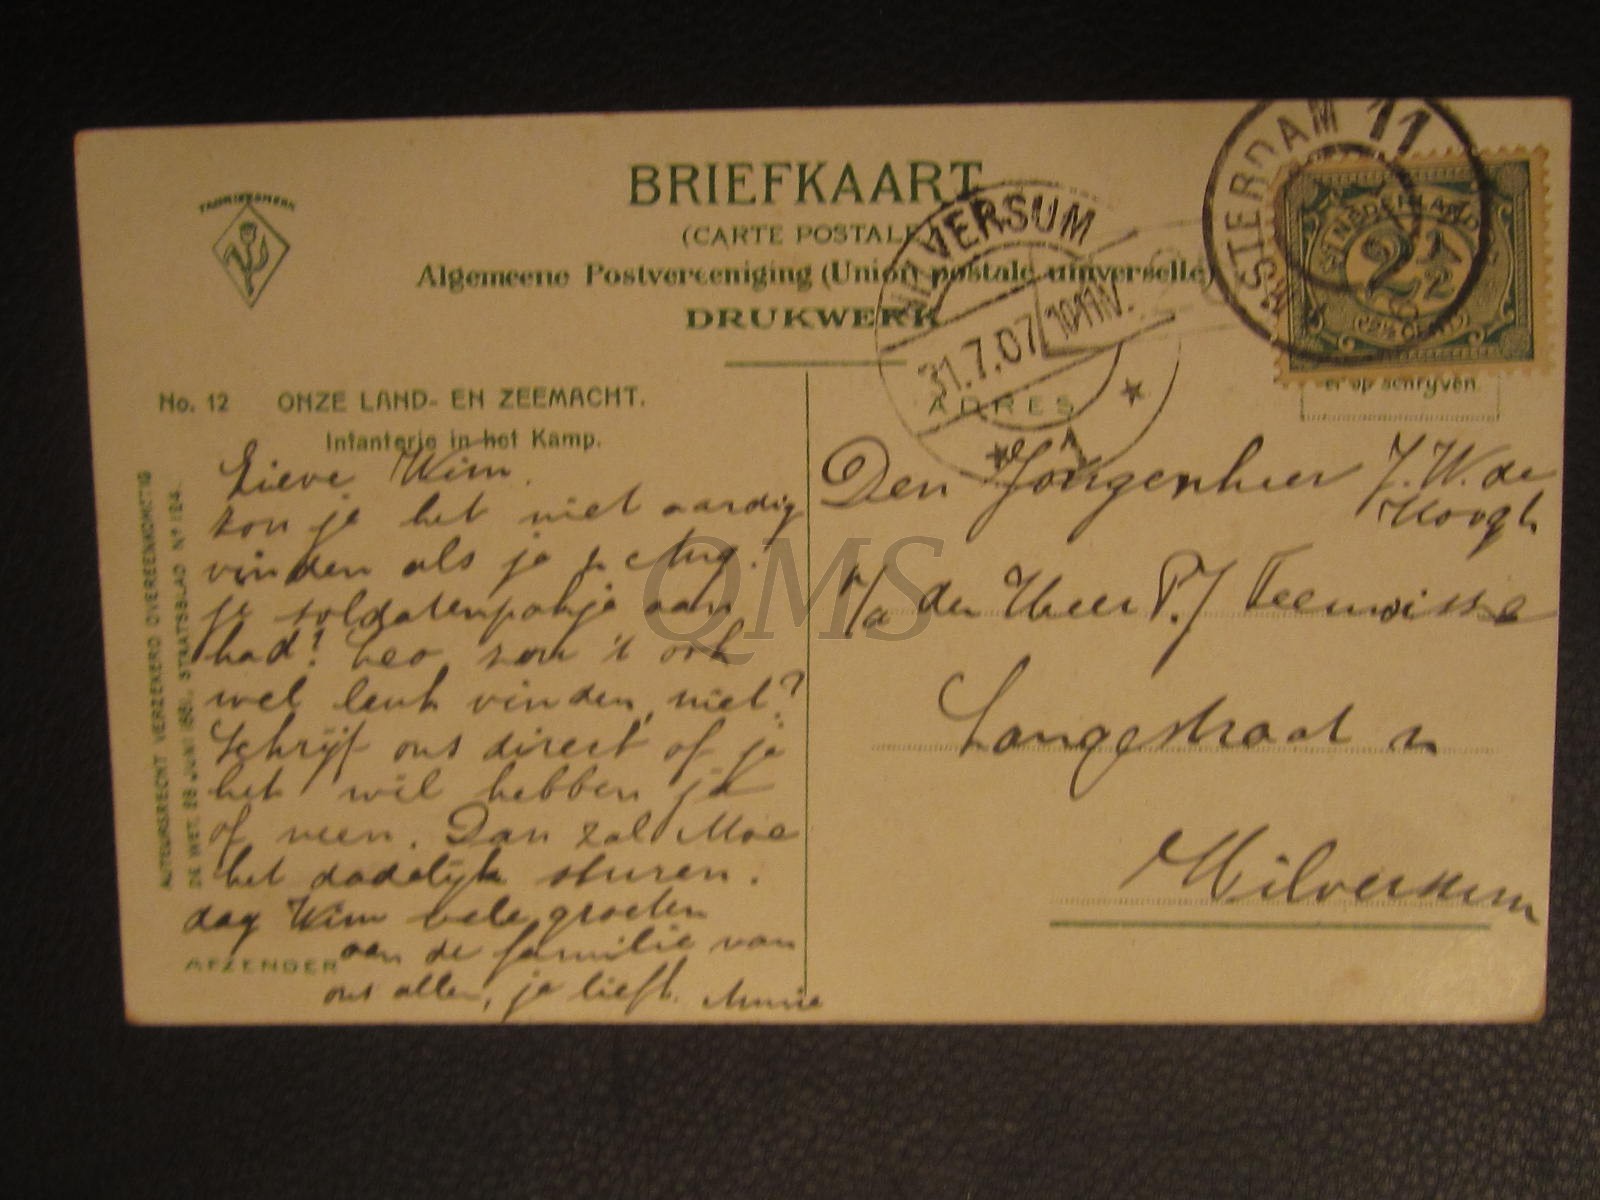 FABRIEKSMERK
BRIEFKAART
(CARTE POSTALE
Algemeene Postvereeniging (Union postale universelle)
DRUKWERK
HILVERSUM
31.7.07 10-11V.
1
AMSTERDAM 11
NEDERLAND
2½
(2½ CENT)
No. 12 ONZE LAND- EN ZEEMACHT.
Infanterie in het Kamp.
ADRES
er op schrijven.
AUTEURSRECHT VERZEKERD OVEREENKOMSTIG
DE WET, 28 JUNI 1881, STAATSBLAD Nº 124.
Lieve Wim,
zou je het niet aardig
vinden als je Aug.
je soldatenpakje aan
had! Leo zou 't ook
wel leuk vinden, niet?
Schrijf ons direct of je
het wil hebben ja
of neen. Dan zal Moe
het dadelijk sturen.
dag Wim vele groeten
aan de familie van
ons allen, je liefh. Annie
AFZENDER
Den Jongenheer J. W. de
Hoogh
p/a den Heer P. J. Teewisse
Langestraat
Hilversum
QMS